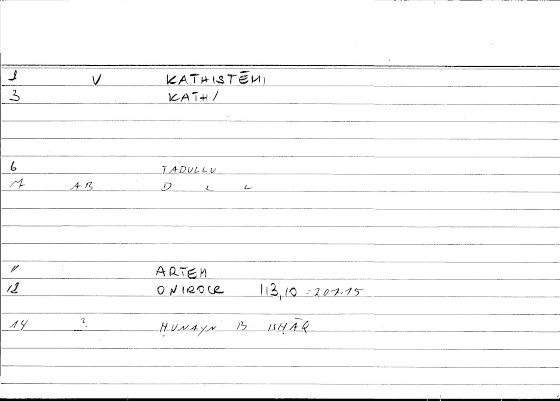 1 V KATHISTĒMI
3 KATH/
6 TADULLU
7 AB D L L
11 ARTEM
12 ONIROCR 113,10 = 207.15
14 ? ḤUNAYN B ISḤĀQ